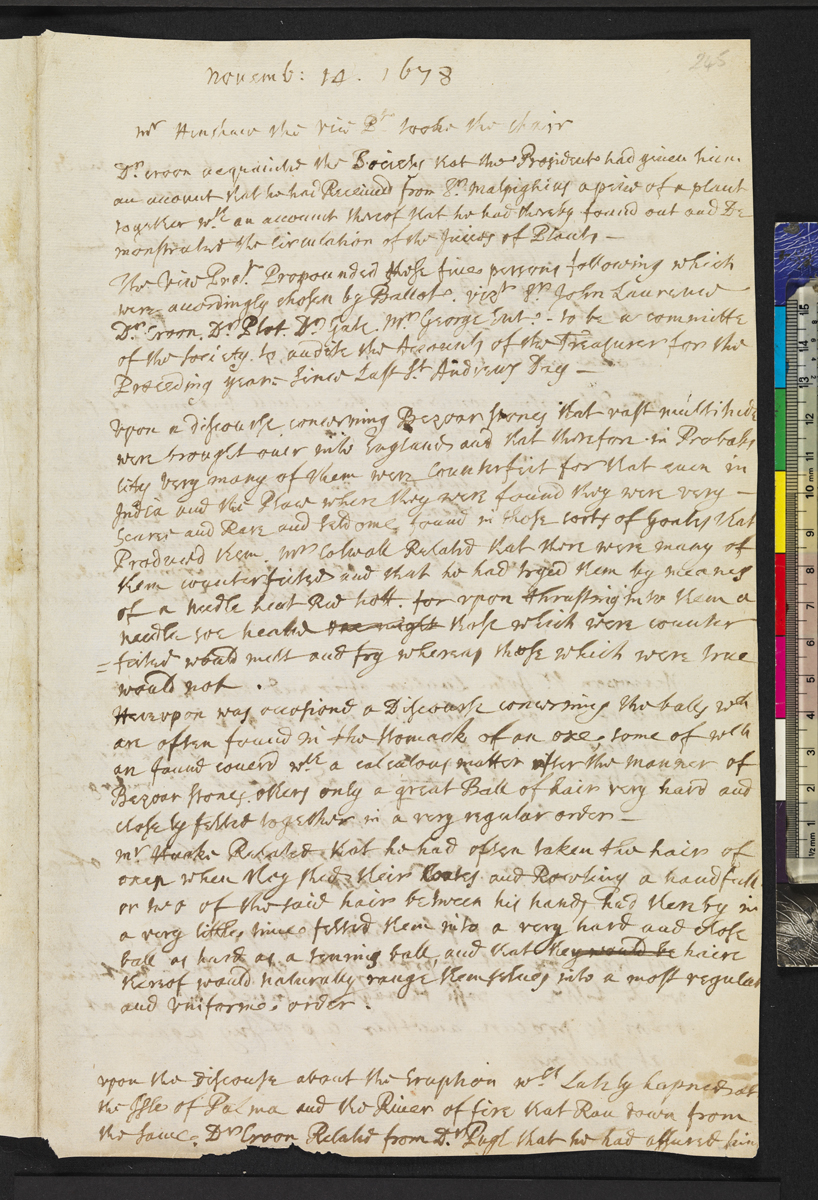 245
Novemb: 14. 1678
Mr Henshaw the vice Pr tooke the chair
Dr Croon acquainted the Society that the President had given him
an account that he had Received from Sr Malpighius a peice of a plant
together wth an account thereof that he had thereby found out and De
monstrated the Circulation of the Juices of Plants —
The Vice Prest. Propounded those five persons following which
were accordingly chosen by Ballot. vizt Sr John Laurence
Dr Croon. Dr Plot. Dr Gale. Mr George Ent. - to be a committe
of the society to audite the Accounts of the Treasurer for the
Preceding year Since Last St Andrews Day —
upon a discourse concerning Bezoar stones that vast multitudes
were brought over into England and that therefore in Probabi
lity very many of them were Counterfeit for that even in
India and the Place where they were found they were very —
Scarce and Rare and seldome found in those sorts of Goates that
Produced them. Mr Colwall Related that there were many of
them counterfeited and that he had tryed them by meanes
of a needle heat Red hott. for upon thrusting into them a
needle soe heated those which were counter
=feited would melt and fry whereas those which were true
would not.
Hereupon was occasiond a Discourse concerning the balls wch
are often found in the stomack of an oxe, some of wch
are found couerd wth a calculous matter after the manner of
Bezoar stones. others only a great Ball of hair very hard and
closely felted together in a very regular order —
Mr Haake Related that he had often taken the hair of
oxen when they shed their Coates and Rowling a handfull
or two of the said hairs between his hands had thereby in
a very little time felted them into a very hard and close
ball as hard as a tennis ball, and that they would be haire
thereof would naturally range themselves into a most regular
and uniforme order.
upon the Discourse about the Eruption wch Lately hapned at
the Isle of Palma and the River of fire that Ran down from
the same. Dr Croon Related from Dr Pugh that he had assured him